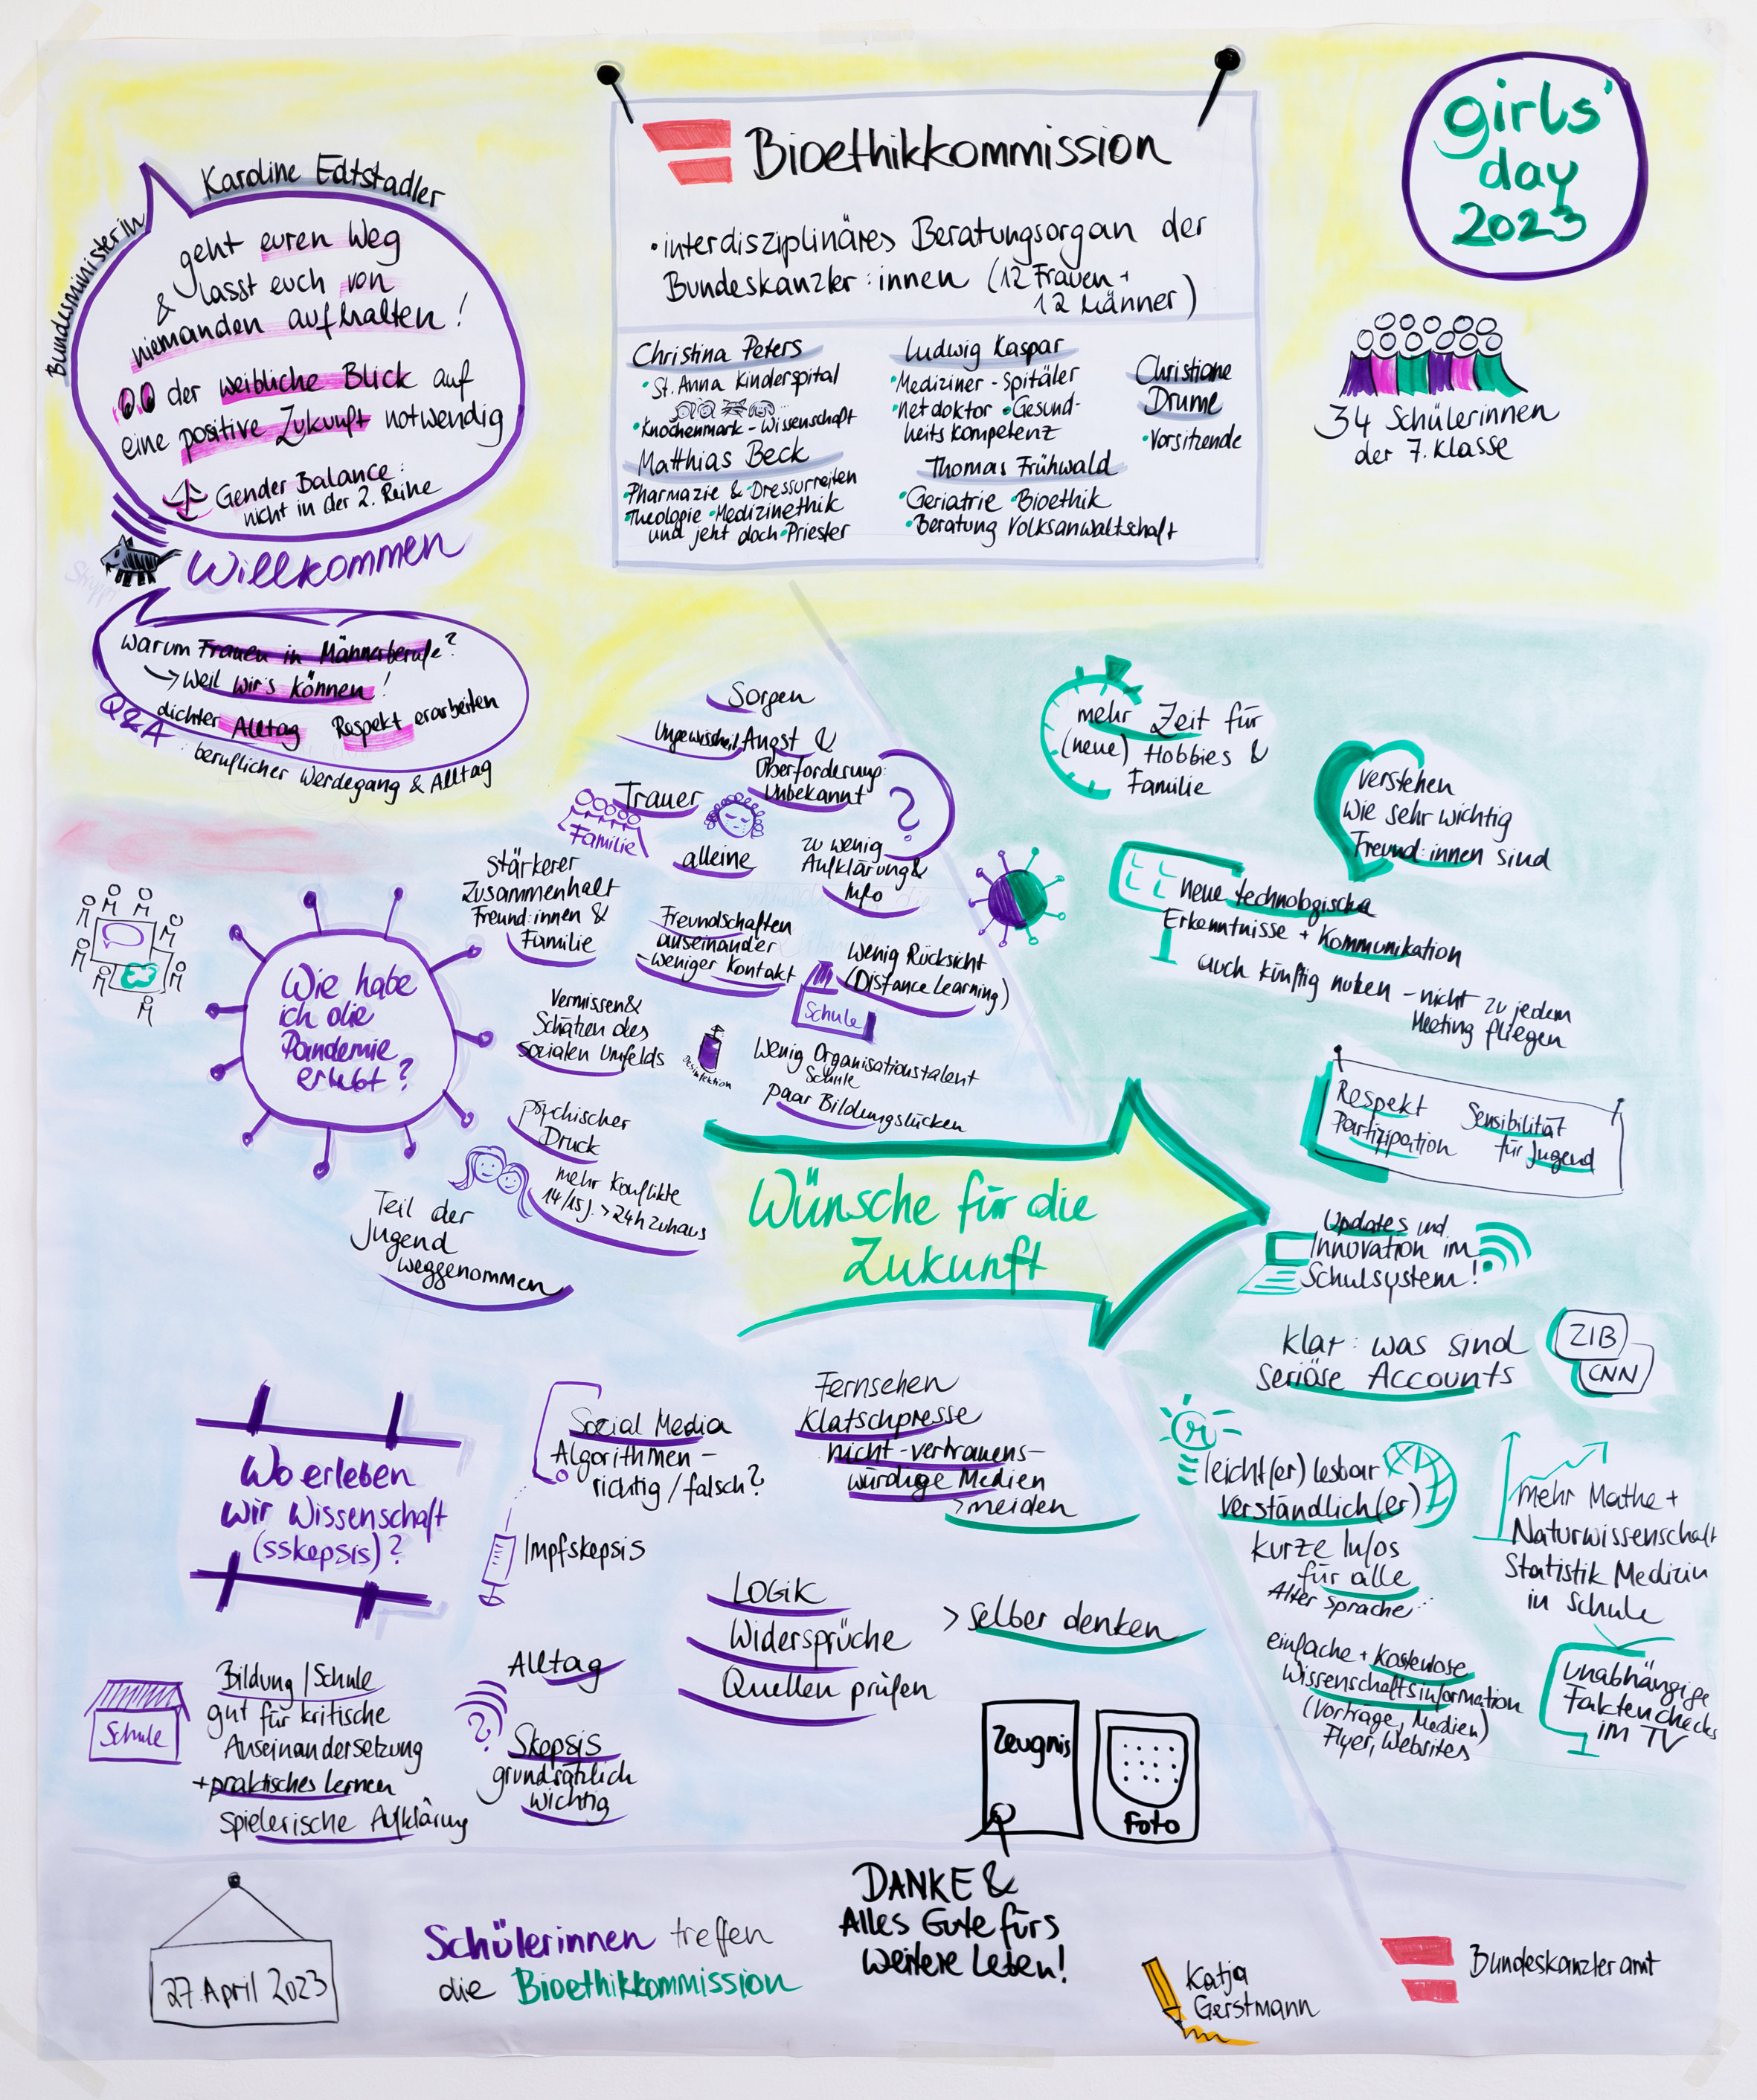 girls'
day
2023
34 Schülerinnen
der 7. Klasse
Bioethikkommission
• interdisziplinäres Beratungsorgan der
Bundeskanzler:innen (12 Frauen +
12 Männer)
Christina Peters
• St. Anna Kinderspital
• Knochenmark - Wissenschaft
Matthias Beck
• Pharmazie & • Dressurreiten
• Theologie • Medizinethik
und jetzt doch • Priester
Ludwig Kaspar
• Mediziner - Spitäler
• Netdoktor • Gesund-
heitskompetenz
Thomas Frühwald
• Geriatrie • Bioethik
• Beratung Volksanwaltschaft
Christiane
Drume
• Vorsitzende
Bundesministerin
Karoline Edtstadler
geht euren Weg
& lasst euch von
niemanden aufhalten!
der weibliche Blick auf
eine positive Zukunft notwendig
Gender Balance:
nicht in der 2. Reihe
Willkommen
Warum Frauen in Männerberufe?
→ Weil wir's können!
dichter Alltag Respekt erarbeiten
Q&A: beruflicher Werdegang & Alltag
Wie habe
ich die
Pandemie
erlebt?
Sorgen
Ungewissheit, Angst &
Überforderung:
Unbekannt
?
Trauer
Familie
alleine
zu wenig
Aufklärung &
Info
Stärkerer
Zusammenhalt
Freund:innen &
Familie
Freundschaften
auseinander
- weniger Kontakt
Wenig Rücksicht
(Distance Learning)
Schule
Vermissen &
Schätzen des
Sozialen Umfelds
Desinfektion
Wenig Organisationstalent
Schule
paar Bildungslücken
psychischer
Druck
mehr Konflikte
14/15J. > 24h zuhaus
Teil der
Jugend
weggenommen
Wünsche für die
Zukunft
mehr Zeit für
(neue) Hobbies &
Familie
verstehen
Wie sehr wichtig
Freund:innen sind
neue technologische
Erkenntnisse + Kommunikation
auch künftig nutzen - nicht zu jedem
Meeting fliegen
Respekt
Partizipation
Sensibilität
für Jugend
Updates und
Innovation im
Schulsystem!
Klar: was sind
seriöse Accounts
ZIB
CNN
leicht(er) lesbar
verständlich(er)
kurze Infos
für alle
Alter Sprache...
mehr Mathe +
Naturwissenschaft
Statistik Medizin
in Schule
einfache + kostenlose
Wissenschaftsinformation
(Vorträge, Medien)
Flyer, Websites
unabhängige
Faktenchecks
im TV
Wo erleben
wir Wissenschaft
(sskepsis)?
Social Media
Algorithmen -
richtig / falsch?
Impfskepsis
Fernsehen
Klatschpresse
nicht-vertrauens-
würdige Medien
> meiden
LOGIK
Widersprüche
Quellen prüfen
> selber denken
Schule
Bildung / Schule
gut für kritische
Auseinandersetzung
+ praktisches Lernen
Spielerische Aufklärung
Alltag
?
Skepsis
grundsätzlich
wichtig
Zeugnis
Foto
DANKE &
Alles Gute fürs
weitere Leben!
27. April 2023
Schülerinnen treffen
die Bioethikkommission
Katja
Gerstmann
Bundeskanzleramt